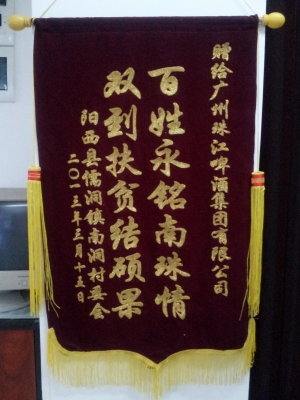 赠给广州珠江啤酒集团有限公司
百姓永铭南珠情
双到扶贫结硕果
阳西县儒洞镇南洞村委会
二〇一三年三月十五日